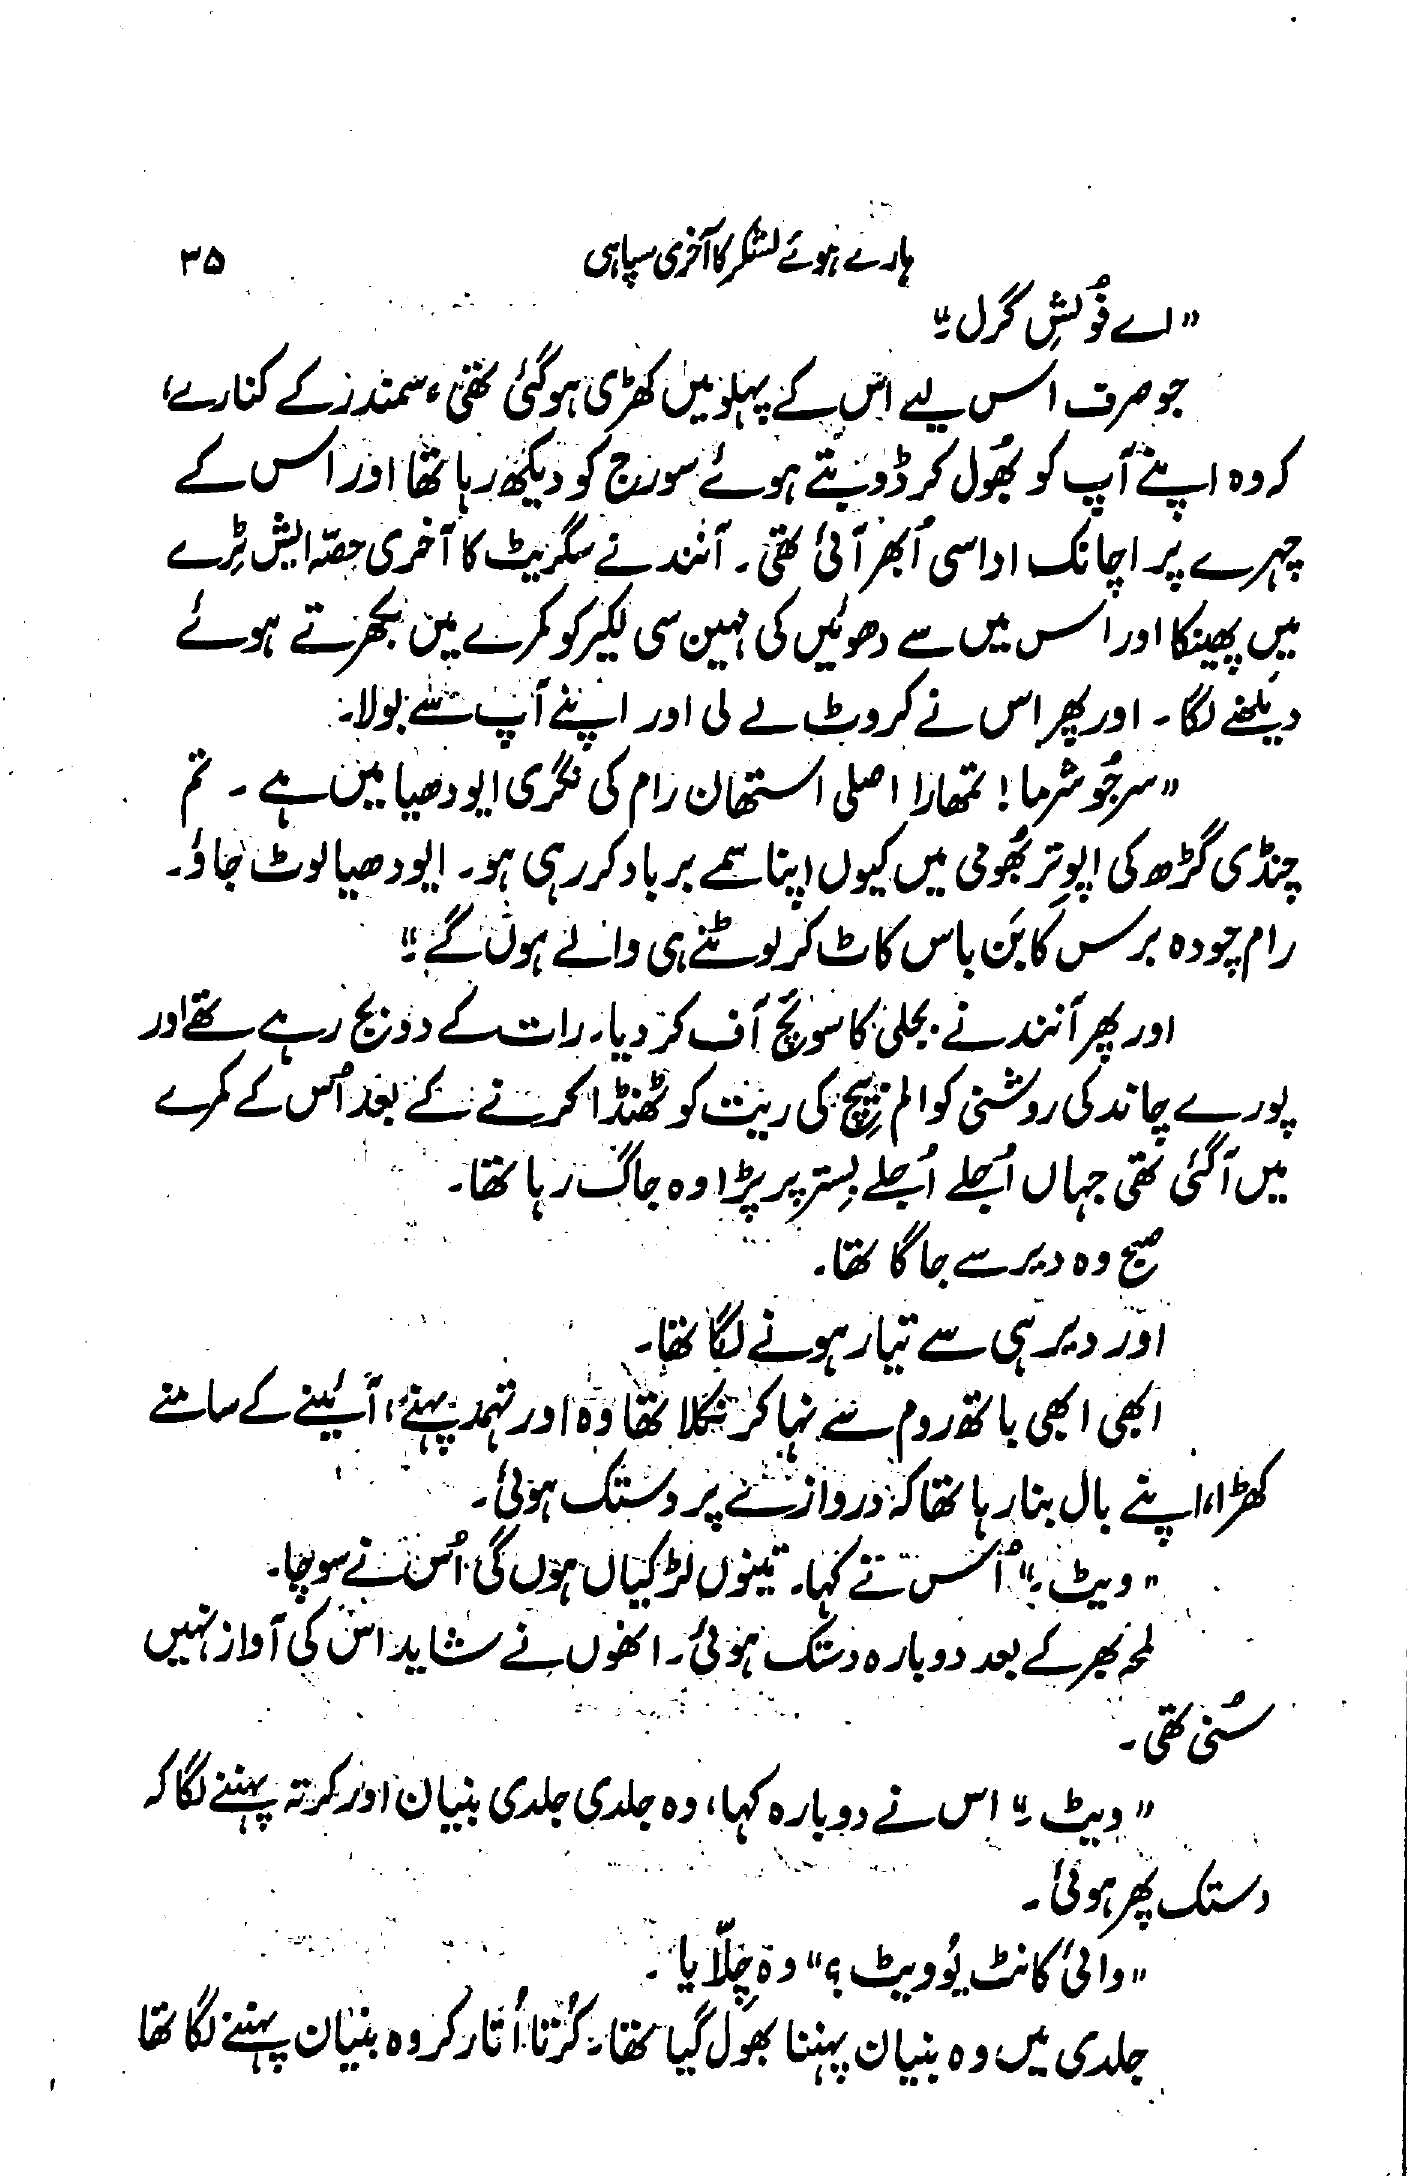 ہارے ہوئے لشکر کا آخری سپاہی ۳۵
"اے فُولِش گرل۔"
جو صرف اس لیے اس کے پہلو میں کھڑی ہو گئی تھی، سمندر کے کنارے،
کہ وہ اپنے آپ کو بھُول کر ڈوبتے ہوئے سورج کو دیکھ رہا تھا اور اس کے
چہرے پر اچانک اداسی اُبھر آئی تھی۔ آنند نے سگریٹ کا آخری حصّہ ایش ٹرے
میں پھینکا اور اس میں سے دھوئیں کی مہین سی لکیر کو کمرے میں بکھرتے ہوئے
دیکھنے لگا۔ اور پھر اس نے کروٹ لے لی اور اپنے آپ سے بولا۔
"سرجُو شرما! تمھارا اصلی استھان رام کی نگری ایودھیا میں ہے۔ تم
چنڈی گڑھ کی اپوِتر بھُومی میں کیوں اپنا سمے برباد کر رہی ہو۔ ایودھیا لوٹ جاؤ۔
رام چودہ برس کا بَن باس کاٹ کر لوٹنے ہی والے ہوں گے۔"
اور پھر آنند نے بجلی کا سوئچ آف کر دیا۔ رات کے دو بج رہے تھے اور
پورے چاند کی روشنی کوالم بیچ کی ریت کو ٹھنڈا کرنے کے بعد اُس کے کمرے
میں آ گئی تھی جہاں اُجلے اُجلے بِستر پر پڑا وہ جاگ رہا تھا۔
صبح وہ دیر سے جاگا تھا۔
اور دیر ہی سے تیار ہونے لگا تھا۔
ابھی ابھی باتھ روم سے نہا کر نکلا تھا وہ اور تہمد پہنے، آئینے کے سامنے
کھڑا، اپنے بال بنا رہا تھا کہ دروازے پر دستک ہوئی۔
"ویٹ۔" اُس نے کہا۔ تینوں لڑکیاں ہوں گی اُس نے سوچا۔
لمحہ بھر کے بعد دوبارہ دستک ہوئی۔ انھوں نے شاید اس کی آواز نہیں
سُنی تھی۔
"ویٹ۔" اس نے دوبارہ کہا، وہ جلدی جلدی بنیان اور کرتہ پہننے لگا کہ
دستک پھر ہوئی۔
"وائی کانٹ یُو ویٹ؟" وہ چِلّایا۔
جلدی میں وہ بنیان پہننا بھُول گیا تھا۔ کُرتا اُتار کر وہ بنیان پہننے لگا تھا